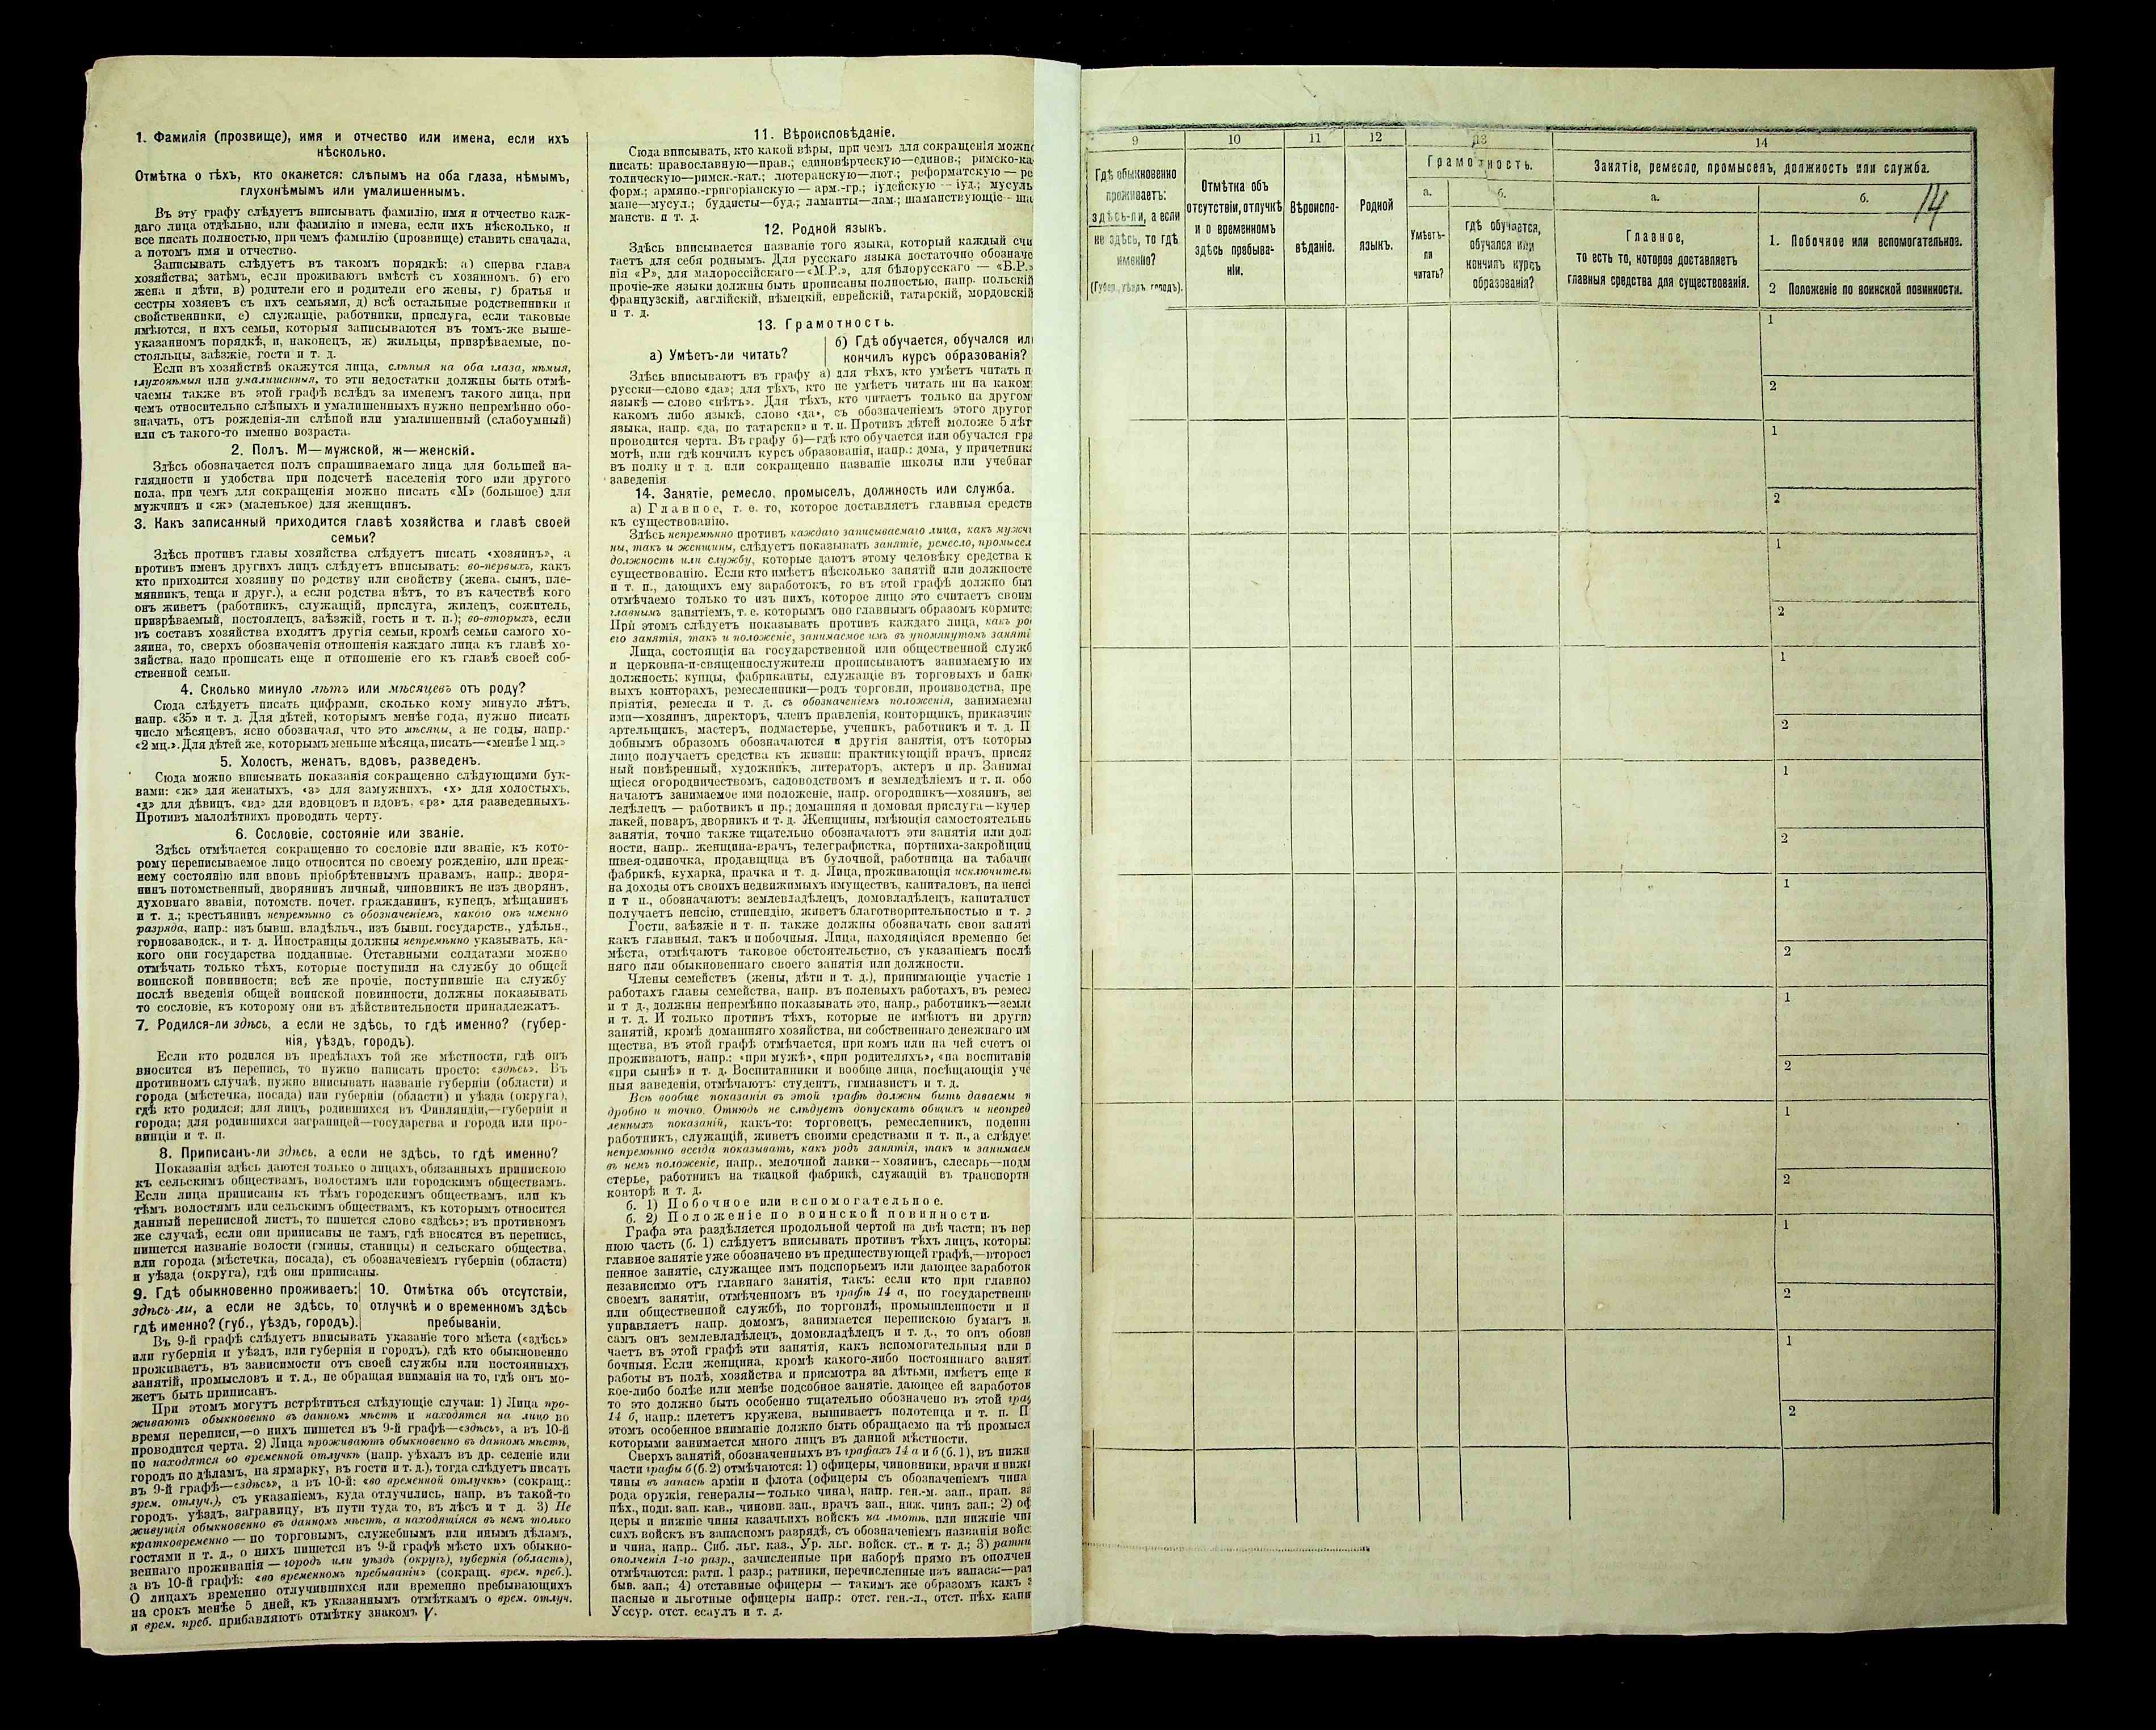 1. Фамилія (прозвище), имя и отчество или имена, если ихъ
нѣсколько.
Отмѣтка о тѣхъ, кто окажется: слѣпымъ на оба глаза, нѣмымъ,
глухонѣмымъ или умалишеннымъ.
Въ эту графу слѣдуетъ вписывать фамилію, имя и отчество каж-
даго лица отдѣльно, или фамилію и имена, если ихъ нѣсколько, и
все писать полностью, при чемъ фамилію (прозвище) ставить сначала,
а потомъ имя и отчество.
Записывать слѣдуетъ въ такомъ порядкѣ: а) сперва глава
хозяйства; затѣмъ, если проживаютъ вмѣстѣ съ хозяиномъ. б) его
жена и дѣти, в) родители его и родители его жены, г) братья и
сестры хозяевъ съ ихъ семьями, д) всѣ остальные родственники и
свойственники, е) служащіе, работники, прислуга, если таковые
имѣются, и ихъ семьи, которыя записываются въ томъ-же выше-
указанномъ порядкѣ, и, наконецъ, ж) жильцы, призрѣваемые, по-
стояльцы, заѣзжіе, гости и т. д.
Если въ хозяйствѣ окажутся лица, слѣпыя на оба глаза, нѣмыя,
глухонѣмыя или умалишенныя, то эти недостатки должны быть отмѣ-
чаемы также въ этой графѣ вслѣдъ за именемъ такого лица, при
чемъ относительно слѣпыхъ и умалишенныхъ нужно непремѣнно обо-
значать, отъ рожденія-ли слѣпой или умалишенный (слабоумный)
или съ такого-то именно возраста.
2. Полъ. М—мужской, ж—женскій.
Здѣсь обозначается полъ спрашиваемаго лица для большей на-
глядности и удобства при подсчетѣ населенія того или другого
пола, при чемъ для сокращенія можно писать «М» (большое) для
мужчинъ и «ж» (маленькое) для женщинъ.
3. Какъ записанный приходится главѣ хозяйства и главѣ своей
семьи?
Здѣсь противъ главы хозяйства слѣдуетъ писать «хозяинъ», а
противъ именъ другихъ лицъ слѣдуетъ вписывать: во-первыхъ, какъ
кто приходится хозяину по родству или свойству (жена, сынъ, пле-
мянникъ, теща и друг.), а если родства нѣтъ, то въ качествѣ кого
онъ живетъ (работникъ, служащій, прислуга, жилецъ, сожитель,
призрѣваемый, постоялецъ, заѣзжій, гость и т. п.); во-вторыхъ, если
въ составъ хозяйства входятъ другія семьи, кромѣ семьи самого хо-
зяина, то, сверхъ обозначенія отношенія каждаго лица къ главѣ хо-
зяйства, надо прописать еще и отношеніе его къ главѣ своей соб-
ственной семьи.
4. Сколько минуло лѣтъ или мѣсяцевъ отъ роду?
Сюда слѣдуетъ писать цифрами, сколько кому минуло лѣтъ,
напр. «35» и т. д. Для дѣтей, которымъ менѣе года, нужно писать
число мѣсяцевъ, ясно обозначая, что это мѣсяцы, а не годы, напр.·
«2 мц.». Для дѣтей же, которымъ меньше мѣсяца, писать—«менѣе 1 мц.»
5. Холостъ, женатъ, вдовъ, разведенъ.
Сюда можно вписывать показанія сокращенно слѣдующими бук-
вами: «ж» для женатыхъ, «з» для замужнихъ, «х» для холостыхъ,
«д» для дѣвицъ, «вд» для вдовцовъ и вдовъ, «рз» для разведенныхъ.
Противъ малолѣтнихъ проводить черту.
6. Сословіе, состояніе или званіе.
Здѣсь отмѣчается сокращенно то сословіе или званіе, къ кото-
рому переписываемое лицо относится по своему рожденію, или преж-
нему состоянію или вновь пріобрѣтеннымъ правамъ, напр.: дворя-
нинъ потомственный, дворянинъ личный, чиновникъ не изъ дворянъ,
духовнаго званія, потомств. почет. гражданинъ, купецъ, мѣщанинъ
и т. д.; крестьянинъ непремѣнно съ обозначеніемъ, какого онъ именно
разряда, напр.: изъ бывш. владѣльч., изъ бывш. государств., удѣльн.,
горнозаводск., и т. д. Иностранцы должны непремѣнно указывать, ка-
кого они государства подданные. Отставными солдатами можно
отмѣчать только тѣхъ, которые поступили на службу до общей
воинской повинности; всѣ же прочіе, поступившіе на службу
послѣ введенія общей воинской повинности, должны показывать
то сословіе, къ которому они въ дѣйствительности принадлежатъ.
7. Родился-ли здѣсь, а если не здѣсь, то гдѣ именно? (губер-
нія, уѣздъ, городъ).
Если кто родился въ предѣлахъ той же мѣстности, гдѣ онъ
вносится въ перепись, то нужно написать просто: «здѣсь». Въ
противномъ случаѣ, нужно вписывать названіе губерніи (области) и
города (мѣстечка, посада) или губерніи (области) и уѣзда (округа),
гдѣ кто родился; для лицъ, родившихся въ Финляндіи,—губерніи и
города; для родившихся заграницей—государства и города или про-
винціи и т. п.
8. Приписанъ-ли здѣсь, а если не здѣсь, то гдѣ именно?
Показанія здѣсь даются только о лицахъ, обязанныхъ припискою
къ сельскимъ обществамъ, волостямъ или городскимъ обществамъ.
Если лица приписаны къ тѣмъ городскимъ обществамъ, или къ
тѣмъ волостямъ или сельскимъ обществамъ, къ которымъ относится
данный переписной листъ, то пишется слово «здѣсь»; въ противномъ
же случаѣ, если они приписаны не тамъ, гдѣ вносятся въ перепись,
пишется названіе волости (гмины, станицы) и сельскаго общества,
или города (мѣстечка, посада), съ обозначеніемъ губерніи (области)
и уѣзда (округа), гдѣ они приписаны.
9. Гдѣ обыкновенно проживаетъ:
здѣсь-ли, а если не здѣсь, то
гдѣ именно? (губ., уѣздъ, городъ).
10. Отмѣтка объ отсутствіи,
отлучкѣ и о временномъ здѣсь
пребываніи.
Въ 9-й графѣ слѣдуетъ вписывать указаніе того мѣста («здѣсь»
или губернія и уѣздъ, или губернія и городъ), гдѣ кто обыкновенно
проживаетъ, въ зависимости отъ своей службы или постоянныхъ
занятій, промысловъ и т. д., не обращая вниманія на то, гдѣ онъ мо-
жетъ быть приписанъ.
При этомъ могутъ встрѣтиться слѣдующіе случаи: 1) Лица про-
живаютъ обыкновенно въ данномъ мѣстѣ и находятся на лицо во
время переписи,—о нихъ пишется въ 9-й графѣ—«здѣсь», а въ 10-й
проводится черта. 2) Лица проживаютъ обыкновенно въ данномъ мѣстѣ,
но находятся во временной отлучкѣ (напр. уѣхалъ въ др. селеніе или
городъ по дѣламъ, на ярмарку, въ гости и т. д.), тогда слѣдуетъ писать
въ 9-й графѣ—«здѣсь», а въ 10-й: «во временной отлучкѣ» (сокращ.:
врем. отлуч.), съ указаніемъ, куда отлучились, напр. въ такой-то
городъ, уѣздъ, заграницу, въ пути туда то, въ лѣсъ и т д. 3) Не
живущія обыкновенно въ данномъ мѣстѣ, а находящіяся въ немъ только
кратковременно — по торговымъ, служебнымъ или инымъ дѣламъ,
гостями и т. д., о нихъ пишется въ 9-й графѣ мѣсто ихъ обыкно-
веннаго проживанія — городъ или уѣздъ (округъ), губернія (область),
а въ 10-й графѣ: «во временномъ пребываніи» (сокращ. врем. преб.).
О лицахъ временно отлучившихся или временно пребывающихъ
на срокъ менѣе 5 дней, къ указаннымъ отмѣткамъ о врем. отлуч.
и врем. преб. прибавляютъ отмѣтку знакомъ V.
11. Вѣроисповѣданіе.
Сюда вписывать, кто какой вѣры, при чемъ для сокращенія можно
писать: православную—прав.; единовѣрческую—единов.; римско-ка
толическую—римск.-кат.; лютеранскую—лют.; реформатскую — ре
форм.; армяно.-григоріанскую — арм.-гр.; іудейскую — іуд.; мусуль
мане—мусул.; буддисты—буд.; ламаиты—лам.; шаманствующіе — ша
манств. и т. д.
12. Родной языкъ.
Здѣсь вписывается названіе того языка, который каждый счи
таетъ для себя роднымъ. Для русскаго языка достаточно обозначе
нія «Р», для малороссійскаго—«М.Р.», для бѣлорусскаго — «Б.Р.»
прочіе-же языки должны быть прописаны полностью, напр. польскій
французскій, англійскій, нѣмецкій, еврейскій, татарскій, мордовскій
и т. д.
13. Грамотность.
а) Умѣетъ-ли читать?
б) Гдѣ обучается, обучался ил
кончилъ курсъ образованія?
Здѣсь вписываютъ въ графу а) для тѣхъ, кто умѣетъ читать п
русски—слово «да»; для тѣхъ, кто не умѣетъ читать ни на каком
языкѣ — слово «нѣтъ». Для тѣхъ, кто читаетъ только на другом
какомъ либо языкѣ, слово «да», съ обозначеніемъ этого другог
языка, напр. «да, по татарски» и т. п. Противъ дѣтей моложе 5 лѣт
проводится черта. Въ графу б)—гдѣ кто обучается или обучался гра
мотѣ, или гдѣ кончилъ курсъ образованія, напр.: дома, у причетника
въ полку и т. д. или сокращенно названіе школы или учебнаг
заведенія
14. Занятіе, ремесло, промыселъ, должность или служба.
а) Главное, т. е. то, которое доставляетъ главныя средств
къ существованію.
Здѣсь непремѣнно противъ каждаго записываемаго лица, какъ мужчи
ны, такъ и женщины, слѣдуетъ показывать занятіе, ремесло, промысел
должность или службу, которые даютъ этому человѣку средства к
существованію. Если кто имѣетъ нѣсколько занятій или должносте
и т. п., дающихъ ему заработокъ, то въ этой графѣ должно быт
отмѣчаемо только то изъ нихъ, которое лицо это считаетъ своим
главнымъ занятіемъ, т. е. которымъ оно главнымъ образомъ кормитс
При этомъ слѣдуетъ показывать противъ каждаго лица, какъ ро
его занятія, такъ и положеніе, занимаемое имъ въ упомянутомъ заняті
Лица, состоящія на государственной или общественной служб
и церковна-и-священнослужители прописываютъ занимаемую им
должность; купцы, фабриканты, служащіе въ торговыхъ и банк
выхъ конторахъ, ремесленники—родъ торговли, производства, пре
пріятія, ремесла и т. д. съ обозначеніемъ положенія, занимаема
ими—хозяинъ, директоръ, членъ правленія, конторщикъ, приказчик
артельщикъ, мастеръ, подмастерье, ученикъ, работникъ и т. д. П
добнымъ образомъ обозначаются и другія занятія, отъ которых
лицо получаетъ средства къ жизни: практикующій врачъ, прися
ный повѣренный, художникъ, литераторъ, актеръ и пр. Занима
щіеся огородничествомъ, садоводствомъ и земледѣліемъ и т. п. обо
начаютъ занимаемое ими положеніе, напр. огородникъ—хозяинъ, зе
ледѣлецъ — работникъ и пр.; домашняя и домовая прислуга—кучер
лакей, поваръ, дворникъ и т. д. Женщины, имѣющія самостоятельнь
занятія, точно также тщательно обозначаютъ эти занятія или дол
ности, напр.. женщина-врачъ, телеграфистка, портниха-закройщиц
швея-одиночка, продавщица въ булочной, работница на табачн
фабрикѣ, кухарка, прачка и т. д. Лица, проживающія исключитель
на доходы отъ своихъ недвижимыхъ имуществъ, капиталовъ, на пенсі
и т п., обозначаютъ: землевладѣлецъ, домовладѣлецъ, капиталист
получаетъ пенсію, стипендію, живетъ благотворительностью и т. д
Гости, заѣзжіе и т. п. также должны обозначать свои заняті
какъ главныя, такъ и побочныя. Лица, находящіяся временно бе
мѣста, отмѣчаютъ таковое обстоятельство, съ указаніемъ послѣ
няго или обыкновеннаго своего занятія или должности.
Члены семействъ (жены, дѣти и т. д.), принимающіе участіе
работахъ главы семейства, напр. въ полевыхъ работахъ, въ ремес
и т. д., должны непремѣнно показывать это, напр., работникъ—земле
и т. д. И только противъ тѣхъ, которые не имѣютъ ни други
занятій, кромѣ домашняго хозяйства, ни собственнаго денежнаго им
щества, въ этой графѣ отмѣчается, при комъ или на чей счетъ о
проживаютъ, напр.: «при мужѣ», «при родителяхъ», «на воспитаніи
«при сынѣ» и т. д. Воспитанники и вообще лица, посѣщающія уче
ныя заведенія, отмѣчаютъ: студентъ, гимназистъ и т. д.
Всѣ вообще показанія въ этой графѣ должны быть даваемы п
дробно и точно. Отнюдь не слѣдуетъ допускать общихъ и неопред
ленныхъ показаній, какъ-то: торговецъ, ремесленникъ, поденн
работникъ, служащій, живетъ своими средствами и т. п., а слѣдуе
непремѣнно всегда показывать, какъ родъ занятія, такъ и занимаем
въ немъ положеніе, напр.. мелочной лавки—хозяинъ, слесарь—подм
стерье, работникъ на ткацкой фабрикѣ, служащій въ транспортн
конторѣ и т. д.
б. 1) Побочное или вспомогательное.
б. 2) Положеніе по воинской повинности.
Графа эта раздѣляется продольной чертой на двѣ части; въ вер
нюю часть (б. 1) слѣдуетъ вписывать противъ тѣхъ лицъ, которы
главное занятіе уже обозначено въ предшествующей графѣ,—второст
пенное занятіе, служащее имъ подспорьемъ или дающее заработок
независимо отъ главнаго занятія, такъ: если кто при главно
своемъ занятіи, отмѣченномъ въ графѣ 14 а, по государственн
или общественной службѣ, по торговлѣ, промышленности и п
управляетъ напр. домомъ, занимается перепискою бумагъ и
самъ онъ землевладѣлецъ, домовладѣлецъ и т. д., то онъ обозн
чаетъ въ этой графѣ эти занятія, какъ вспомогательныя или п
бочныя. Если женщина, кромѣ какого-либо постояннаго занят
работы въ полѣ, хозяйства и присмотра за дѣтьми, имѣетъ еще к
кое-либо болѣе или менѣе подсобное занятіе, дающее ей заработок
то это должно быть особенно тщательно обозначено въ этой гра
14 б, напр.: плететъ кружева, вышиваетъ полотенца и т. п. П
этомъ особенное вниманіе должно быть обращаемо на тѣ промысл
которыми занимается много лицъ въ данной мѣстности.
Сверхъ занятій, обозначенныхъ въ графахъ 14 а и б (б. 1), въ нижн
части графы б (б. 2) отмѣчаются: 1) офицеры, чиновники, врачи и нижн
чины въ запасѣ арміи и флота (офицеры съ обозначеніемъ чина
рода оружія, генералы—только чина), напр. ген.-м. зап., прап. за
пѣх., подп. зап. кав., чиновн. зап., врачъ зап., ниж. чинъ зап.; 2) оф
церы и нижніе чины казачьихъ войскъ на льготѣ, или нижніе чи
сихъ войскъ въ запасномъ разрядѣ, съ обозначеніемъ названія войс
и чина, напр.. Сиб. льг. каз., Ур. льг. войск. ст., и т. д.; 3) ратни
ополченія 1-го разр., зачисленные при наборѣ прямо въ ополчен
отмѣчаются: ратн. 1 разр.; ратники, перечисленные изъ запаса:—рат
быв. зап.; 4) отставные офицеры — такимъ же образомъ какъ з
пасные и льготные офицеры напр.: отст. ген.-л., отст. пѣх. капи
Уссур. отст. есаулъ и т. д.
9
10
11
12
13
14
Гдѣ обыкновенно
проживаетъ:
здѣсь-ли, а если
не здѣсь, то гдѣ
именно?
(Губер., уѣздъ, городъ).
Отмѣтка объ
отсутствіи, отлучкѣ
и о временномъ
здѣсь пребыва-
ніи.
Вѣроиспо-
вѣданіе.
Родной
языкъ.
Грамотность.
а.
Умѣетъ-
ли
читать?
б.
гдѣ обучается,
обучался или
кончилъ курсъ
образованія?
Занятіе, ремесло, промыселъ, должность или служба.
а.
Главное,
то есть то, которое доставляетъ
главныя средства для существованія.
б.
14
1. Побочное или вспомогательное.
2 Положеніе по воинской повинности.
1
2
1
2
1
2
1
2
1
2
1
2
1
2
1
2
1
2
1
2